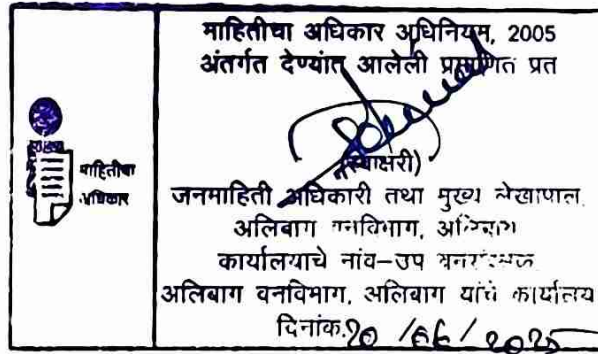 माहितीचा अधिकार अधिनियम, 2005
अंतर्गत देण्यांत आलेली प्रमाणित प्रत
माहितीचा
अधिकार
(स्वाक्षरी)
जनमाहिती अधिकारी तथा मुख्य लेखापाल
अलिबाग वनविभाग, अलिबाग
कार्यालयाचे नांव-उप वनसंरक्षक
अलिबाग वनविभाग, अलिबाग यांचे कार्यालय
दिनांक.